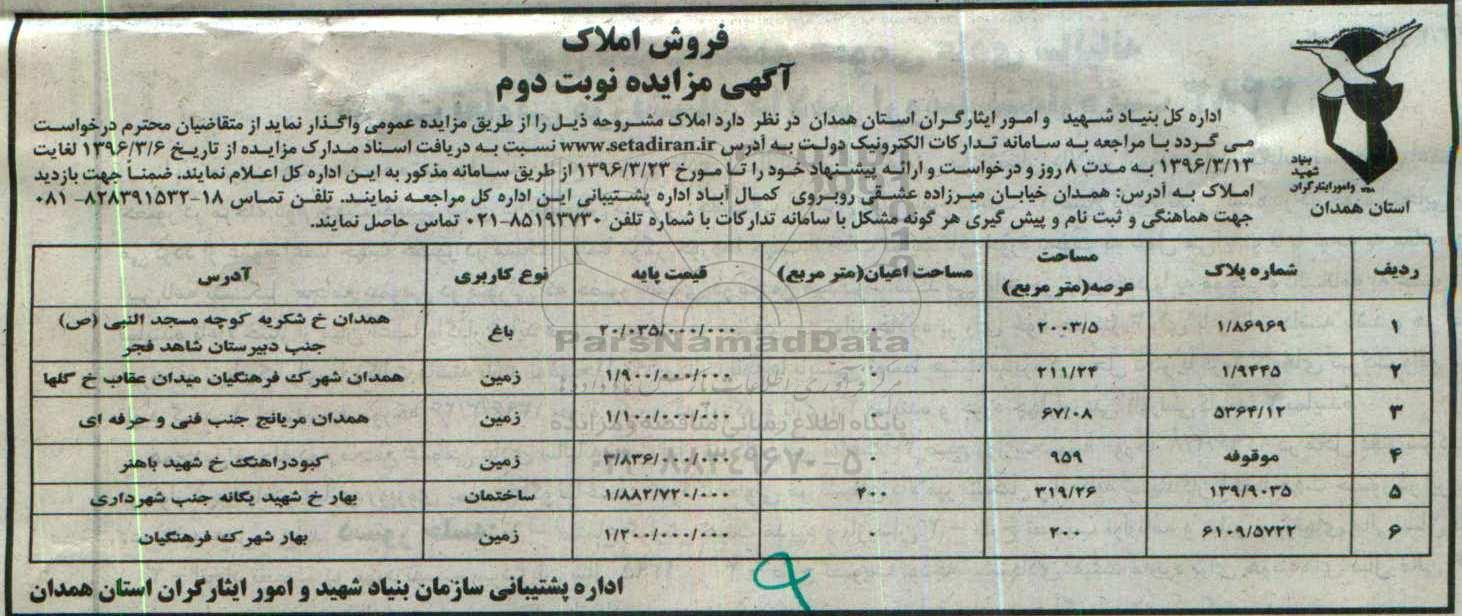 فروش املاک
آگهی مزایده نوبت دوم
اداره کل بنیاد شهید و امور ایثارگران استان همدان در نظر دارد املاک مشروحه ذیل را از طریق مزایده عمومی واگذار نماید از متقاضیان محترم درخواست
می گردد با مراجعه به سامانه تدارکات الکترونیک دولت به آدرس www.setadiran.ir نسبت به دریافت اسناد مدارک مزایده از تاریخ ۱۳۹۶/۳/۶ لغایت
۱۳۹۶/۳/۱۳ به مدت ۸ روز و درخواست و ارائه پیشنهاد خود را تا مورخ ۱۳۹۶/۳/۲۳ از طریق سامانه مذکور به این اداره کل اعلام نمایند. ضمناً جهت بازدید
املاک به آدرس: همدان خیابان میرزاده عشقی روبروی کمال آباد اداره پشتیبانی این اداره کل مراجعه نمایند. تلفن تماس ۱۸-۸۲۸۳۹۱۵۳۲- ۰۸۱
جهت هماهنگی و ثبت نام و پیش گیری هر گونه مشکل با سامانه تدارکات با شماره تلفن ۸۵۱۹۳۷۳۰-۰۲۱ تماس حاصل نمایند.
بنیاد
شهید
وامور ایثارگران
استان همدان
ردیف شماره پلاک مساحت عرصه(متر مربع) مساحت اعیان(متر مربع) قیمت پایه نوع کاربری آدرس
۱ ۱/۸۶۹۶۹ ۲۰۰۳/۵ ۰ ۲۰/۰۳۵/۰۰۰/۰۰۰ باغ همدان خ شکریه کوچه مسجد النبی (ص)
جنب دبیرستان شاهد فجر
۲ ۱/۹۴۴۵ ۲۱۱/۲۴ ۰ ۱/۹۰۰/۰۰۰/۰۰۰ زمین همدان شهرک فرهنگیان میدان عقاب خ گلها
۳ ۵۳۶۴/۱۲ ۶۷/۰۸ ۰ ۱/۱۰۰/۰۰۰/۰۰۰ زمین همدان مریانج جنب فنی و حرفه ای
۴ موقوفه ۹۵۹ ۰ ۳/۸۳۶/۰۰۰/۰۰۰ زمین کبودراهنگ خ شهید باهنر
۵ ۱۳۹/۹۰۳۵ ۳۱۹/۲۶ ۴۰۰ ۱/۸۸۲/۷۲۰/۰۰۰ ساختمان بهار خ شهید یگانه جنب شهرداری
۶ ۶۱۰۹/۵۷۲۲ ۲۰۰ ۰ ۱/۲۰۰/۰۰۰/۰۰۰ زمین بهار شهرک فرهنگیان
ParsNamadData
پایگاه اطلاع رسانی مناقصه و مزایده
۰۲۱-۸۸۳۴۹۶۷۰-۵
اداره پشتیبانی سازمان بنیاد شهید و امور ایثارگران استان همدان
۹